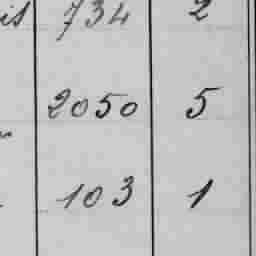 734 2
2050 5
103 1